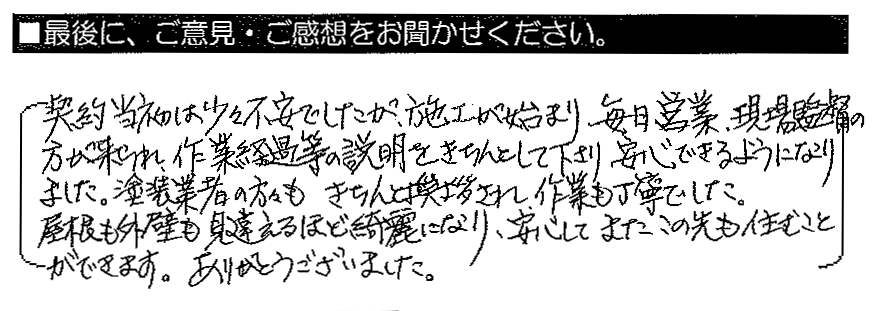 ■最後に、ご意見・ご感想をお聞かせください。
契約当初は少々不安でしたが、施工が始まり、毎日営業、現場監督の
方が来られ、作業経過等の説明をきちんとして下さり、安心できるようになり
ました。塗装業者の方々も きちんと挨拶され、作業も丁寧でした。
屋根も外壁も見違えるほど綺麗になり、安心して またこの先も住むこと
ができます。ありがとうございました。